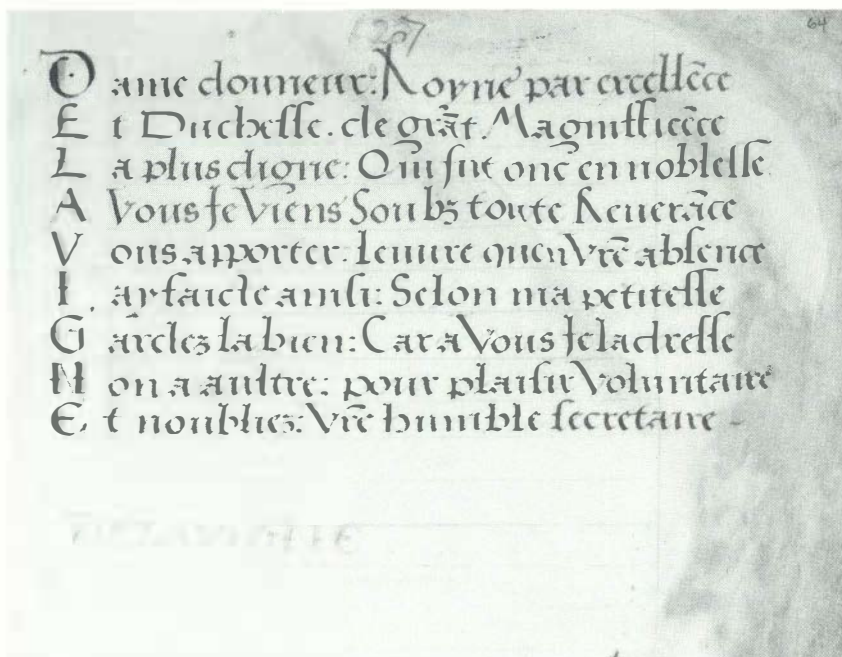 64
207
Dame donneur: Royne par excellẽce
Et Duchesse. de grãt. Magnifficẽce
La plus digne: Qui fut onc̃ en noblesse
A Vous Je Viens Soubz toute Reuerãce
Vous apporter. Leuure quen Vr̃e absence
I. ay faicte ainsi: Selon ma petitesse
Gardez la bien: Car a Vous Je ladresse
Non a aultre: pour plaisir Voluntaire
Et noublies: Vr̃e humble secretaire -